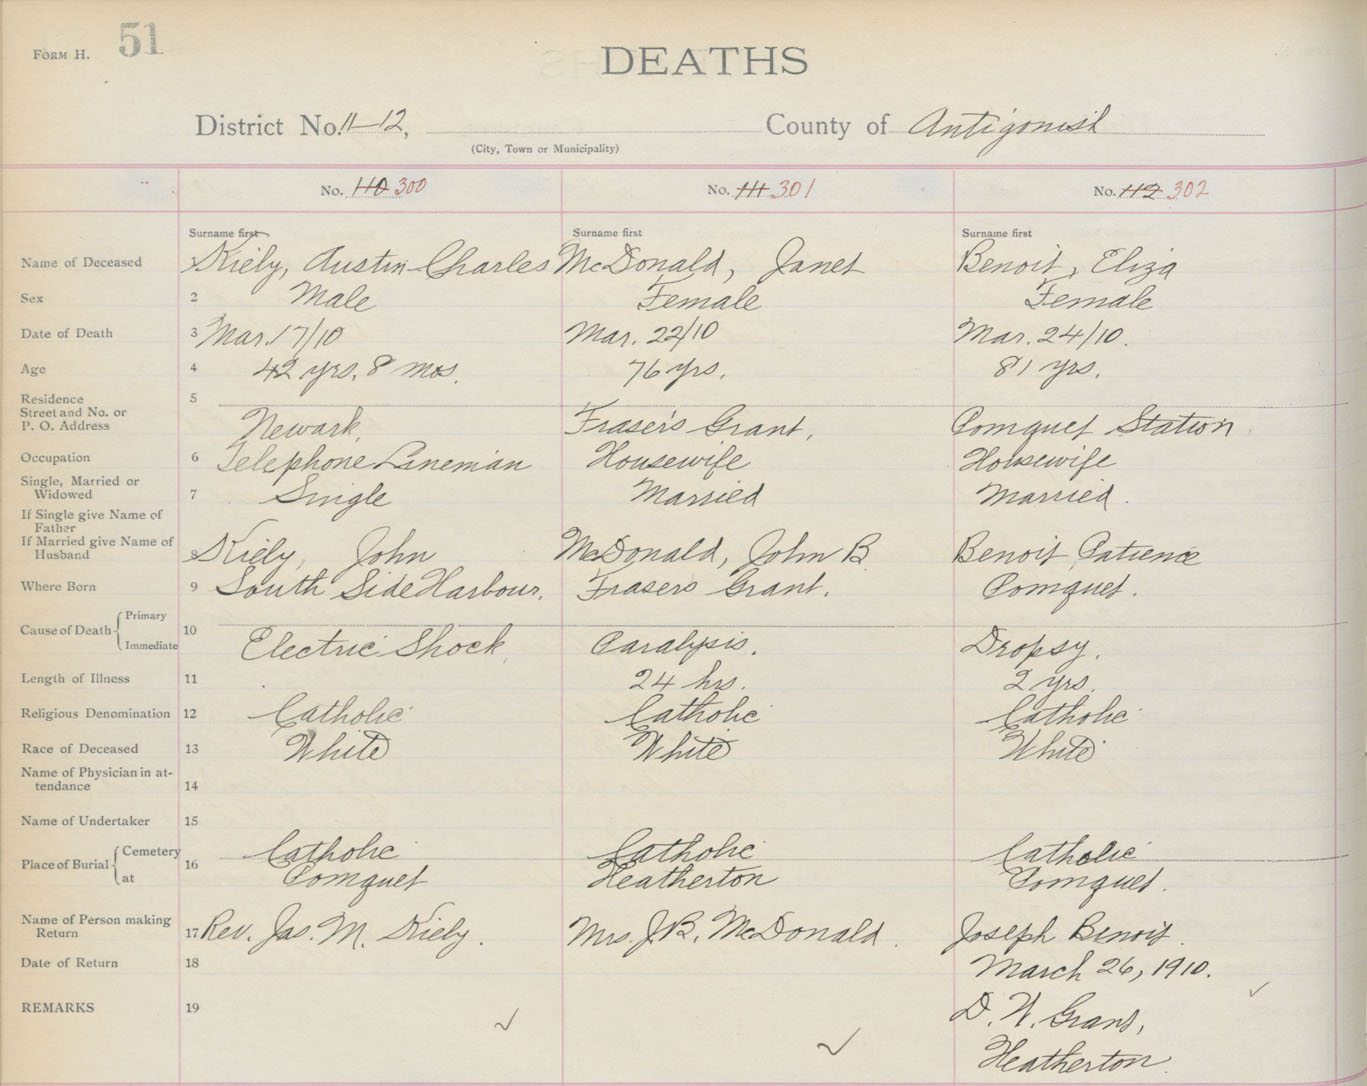 FORM H. 51
DEATHS
District No. 11-12, County of Antigonish
(City, Town or Municipality)
No. 110 300 No. 111 301 No. 112 302
Surname first Surname first Surname first
Name of Deceased 1 Kiely, Austin Charles McDonald, Janet Benoit, Eliza
Sex 2 Male Female Female
Date of Death 3 Mar. 17/10 Mar. 22/10 Mar. 24/10.
Age 4 42 yrs. 8 mos. 76 yrs. 81 yrs.
Residence 5
Street and No. or
P. O. Address Newark, Fraser's Grant, Pomquet Station
Occupation 6 Telephone Lineman Housewife Housewife
Single, Married or
Widowed 7 Single Married Married.
If Single give Name of
Father
If Married give Name of
Husband 8 Kiely, John McDonald, John B. Benoit, Patience
Where Born 9 South Side Harbour. Frasers Grant. Pomquet.
Cause of Death Primary 10
Immediate Electric Shock Paralysis. Dropsy.
Length of Illness 11 24 hrs. 2 yrs.
Religious Denomination 12 Catholic Catholic Catholic
Race of Deceased 13 White White White
Name of Physician in at-
tendance 14
Name of Undertaker 15
Place of Burial Cemetery 16 Catholic Catholic Catholic
at Pomquet Heatherton Pomquet.
Name of Person making
Return 17 Rev. Jas. M. Kiely. Mrs. J.B. McDonald. Joseph Benoit.
Date of Return 18 March 26, 1910.
REMARKS 19 D. W. Grant,
Heatherton